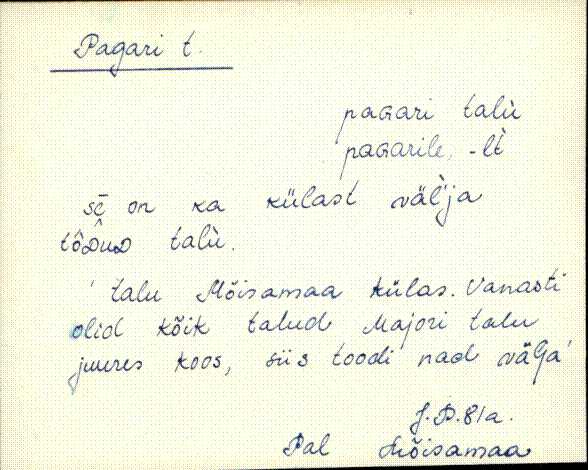 Pagari t.
paGari talù
paGarile, -lt̀
sē on ka külast väl̀ja
tôDuD talù.
talu Mõisamaa külas. Vanasti
olid kõik talud Majori talu
juures koos, siis toodi nad välja
J.P. 81a.
Pal Mõisamaa